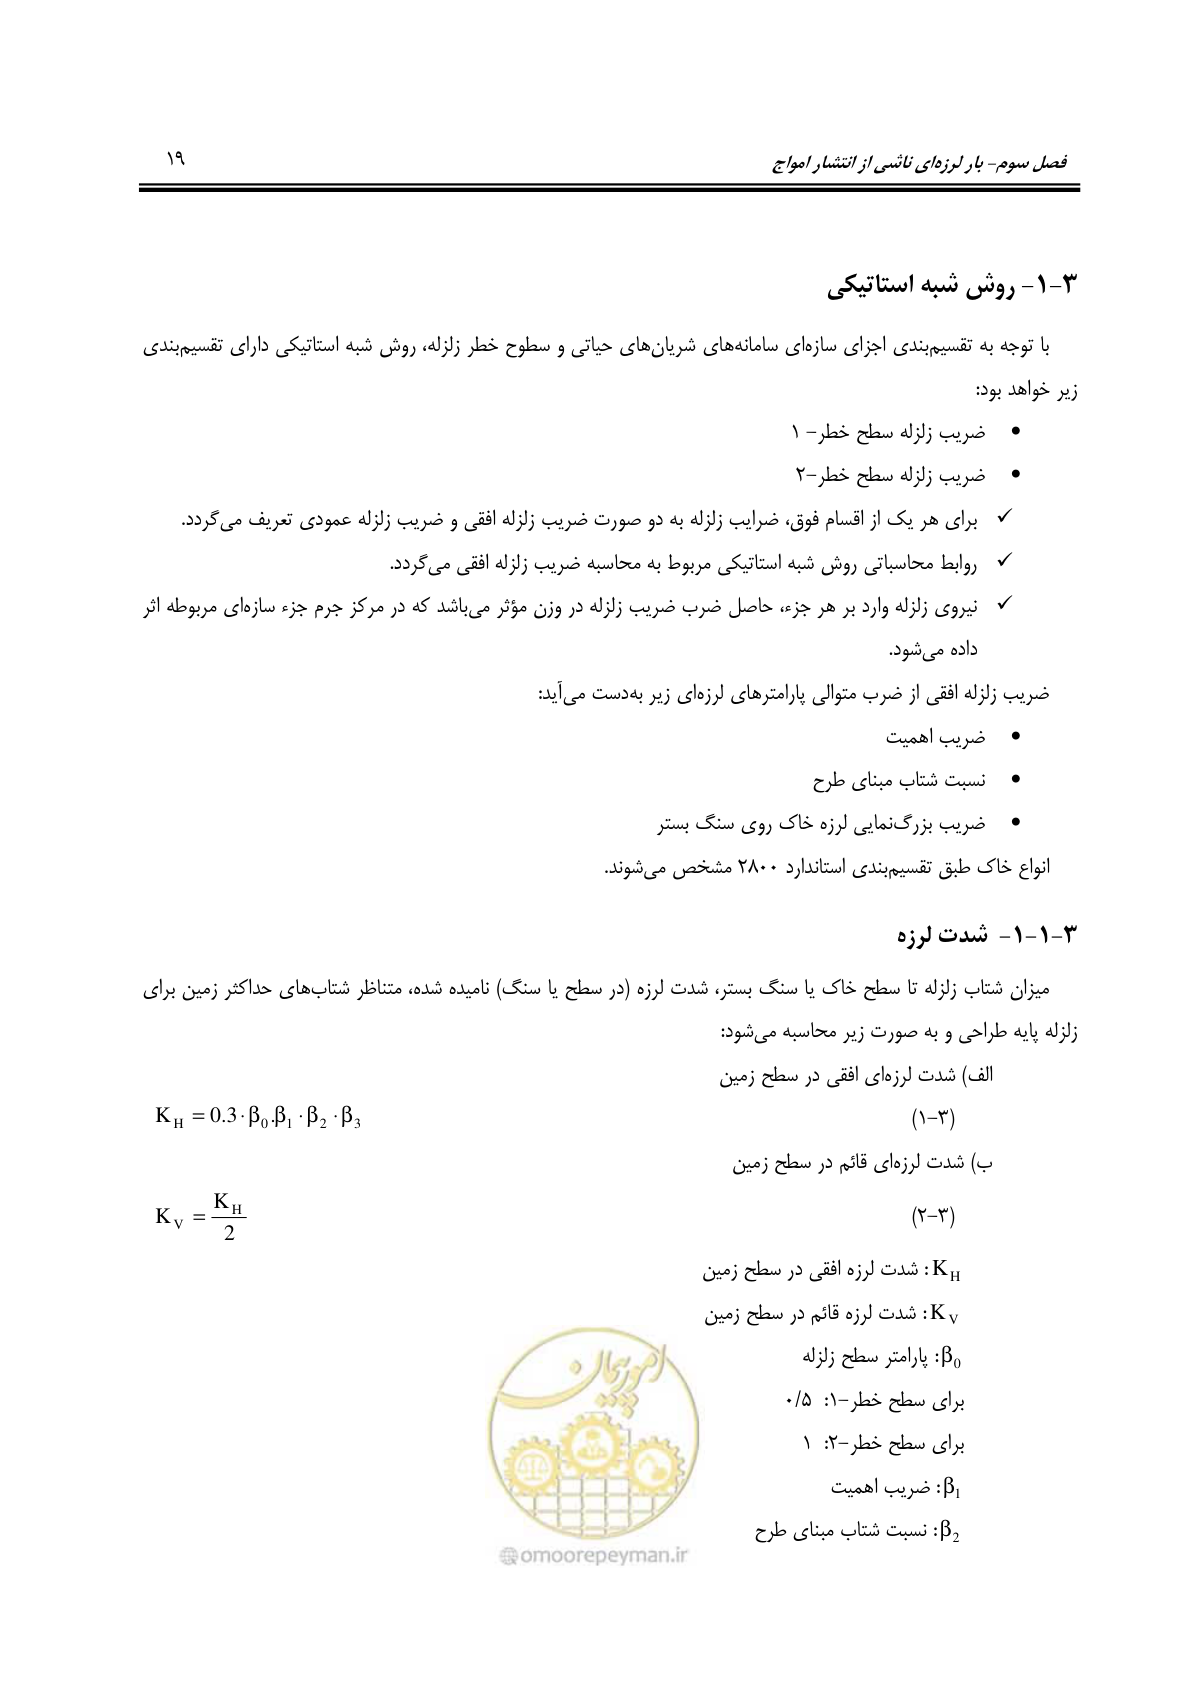 فصل سوم– بار لرزه‌ای ناشی از انتشار امواج ۱۹
۳–۱– روش شبه استاتیکی
با توجه به تقسیم‌بندی اجزای سازه‌ای سامانه‌های شریان‌های حیاتی و سطوح خطر زلزله، روش شبه استاتیکی دارای تقسیم‌بندی
زیر خواهد بود:
• ضریب زلزله سطح خطر– ۱
• ضریب زلزله سطح خطر–۲
✓ برای هر یک از اقسام فوق، ضرایب زلزله به دو صورت ضریب زلزله افقی و ضریب زلزله عمودی تعریف می‌گردد.
✓ روابط محاسباتی روش شبه استاتیکی مربوط به محاسبه ضریب زلزله افقی می‌گردد.
✓ نیروی زلزله وارد بر هر جزء، حاصل ضرب ضریب زلزله در وزن مؤثر می‌باشد که در مرکز جرم جزء سازه‌ای مربوطه اثر
داده می‌شود.
ضریب زلزله افقی از ضرب متوالی پارامترهای لرزه‌ای زیر به‌دست می‌آید:
• ضریب اهمیت
• نسبت شتاب مبنای طرح
• ضریب بزرگ‌نمایی لرزه خاک روی سنگ بستر
انواع خاک طبق تقسیم‌بندی استاندارد ۲۸۰۰ مشخص می‌شوند.
۳–۱–۱– شدت لرزه
میزان شتاب زلزله تا سطح خاک یا سنگ بستر، شدت لرزه (در سطح یا سنگ) نامیده شده، متناظر شتاب‌های حداکثر زمین برای
زلزله پایه طراحی و به صورت زیر محاسبه می‌شود:
الف) شدت لرزه‌ای افقی در سطح زمین
(۳–۱) K_H = 0.3 · β_0 . β_1 · β_2 · β_3
ب) شدت لرزه‌ای قائم در سطح زمین
(۳–۲) K_V = K_H / 2
K_H : شدت لرزه افقی در سطح زمین
K_V : شدت لرزه قائم در سطح زمین
β_0: پارامتر سطح زلزله
برای سطح خطر–۱: ۰/۵
برای سطح خطر–۲: ۱
β_1: ضریب اهمیت
β_2: نسبت شتاب مبنای طرح
امور پیمان
@omoorepeyman.ir